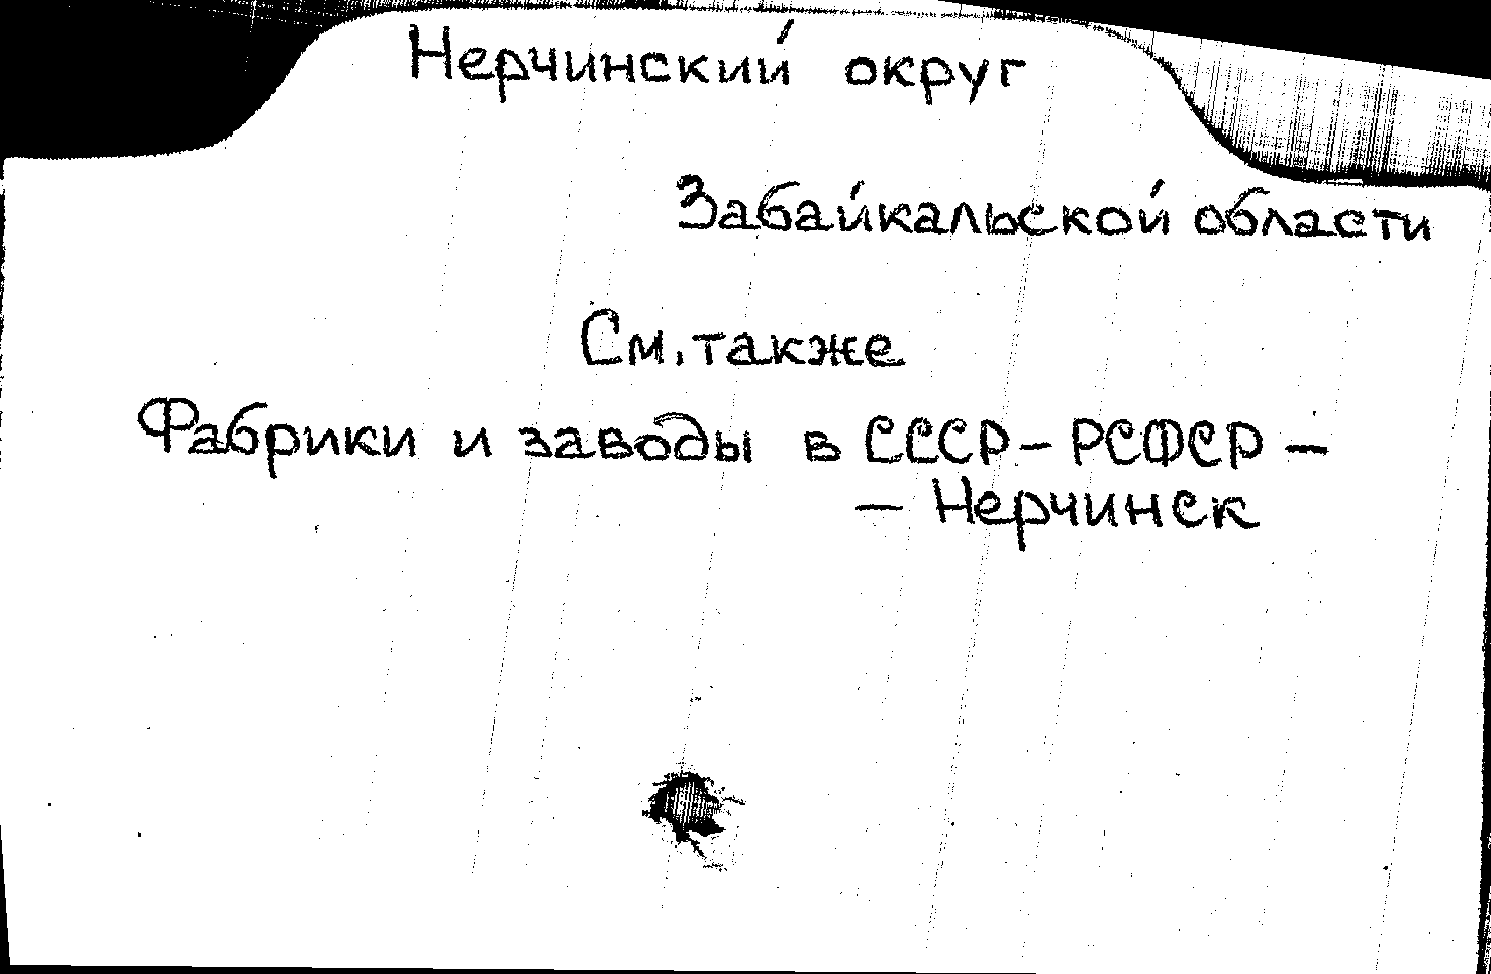 Нерчинский округ
Забайкальской области
См. также
Фабрики и заводы в СССР – РСФСР –
– Нерчинск